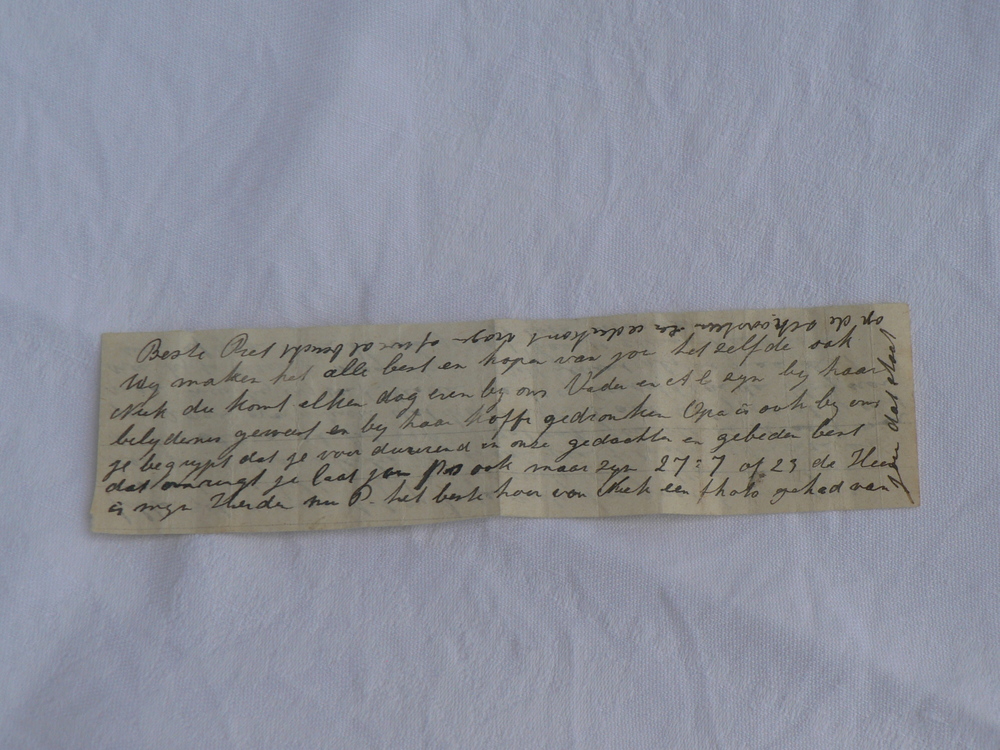 Beste Piet
Wij maken het alle best en hopen van jou het zelfde ook
Riek die komt elken dag even bij ons Vader en A l zijn bij haar
belydenis geweest en bij haar koffi gedronken Opa is ook bij ons
je begrypt dat je voordurend in onze gedachten en gebeden bent
dat omringt je laat jou ps ook maar zyn 27:7 of 23 de Heer
is mijn Herder nu P. het beste hoor van Riek een photo gehad van
jou dat staat
op de schoorsteen en iederkant draagt